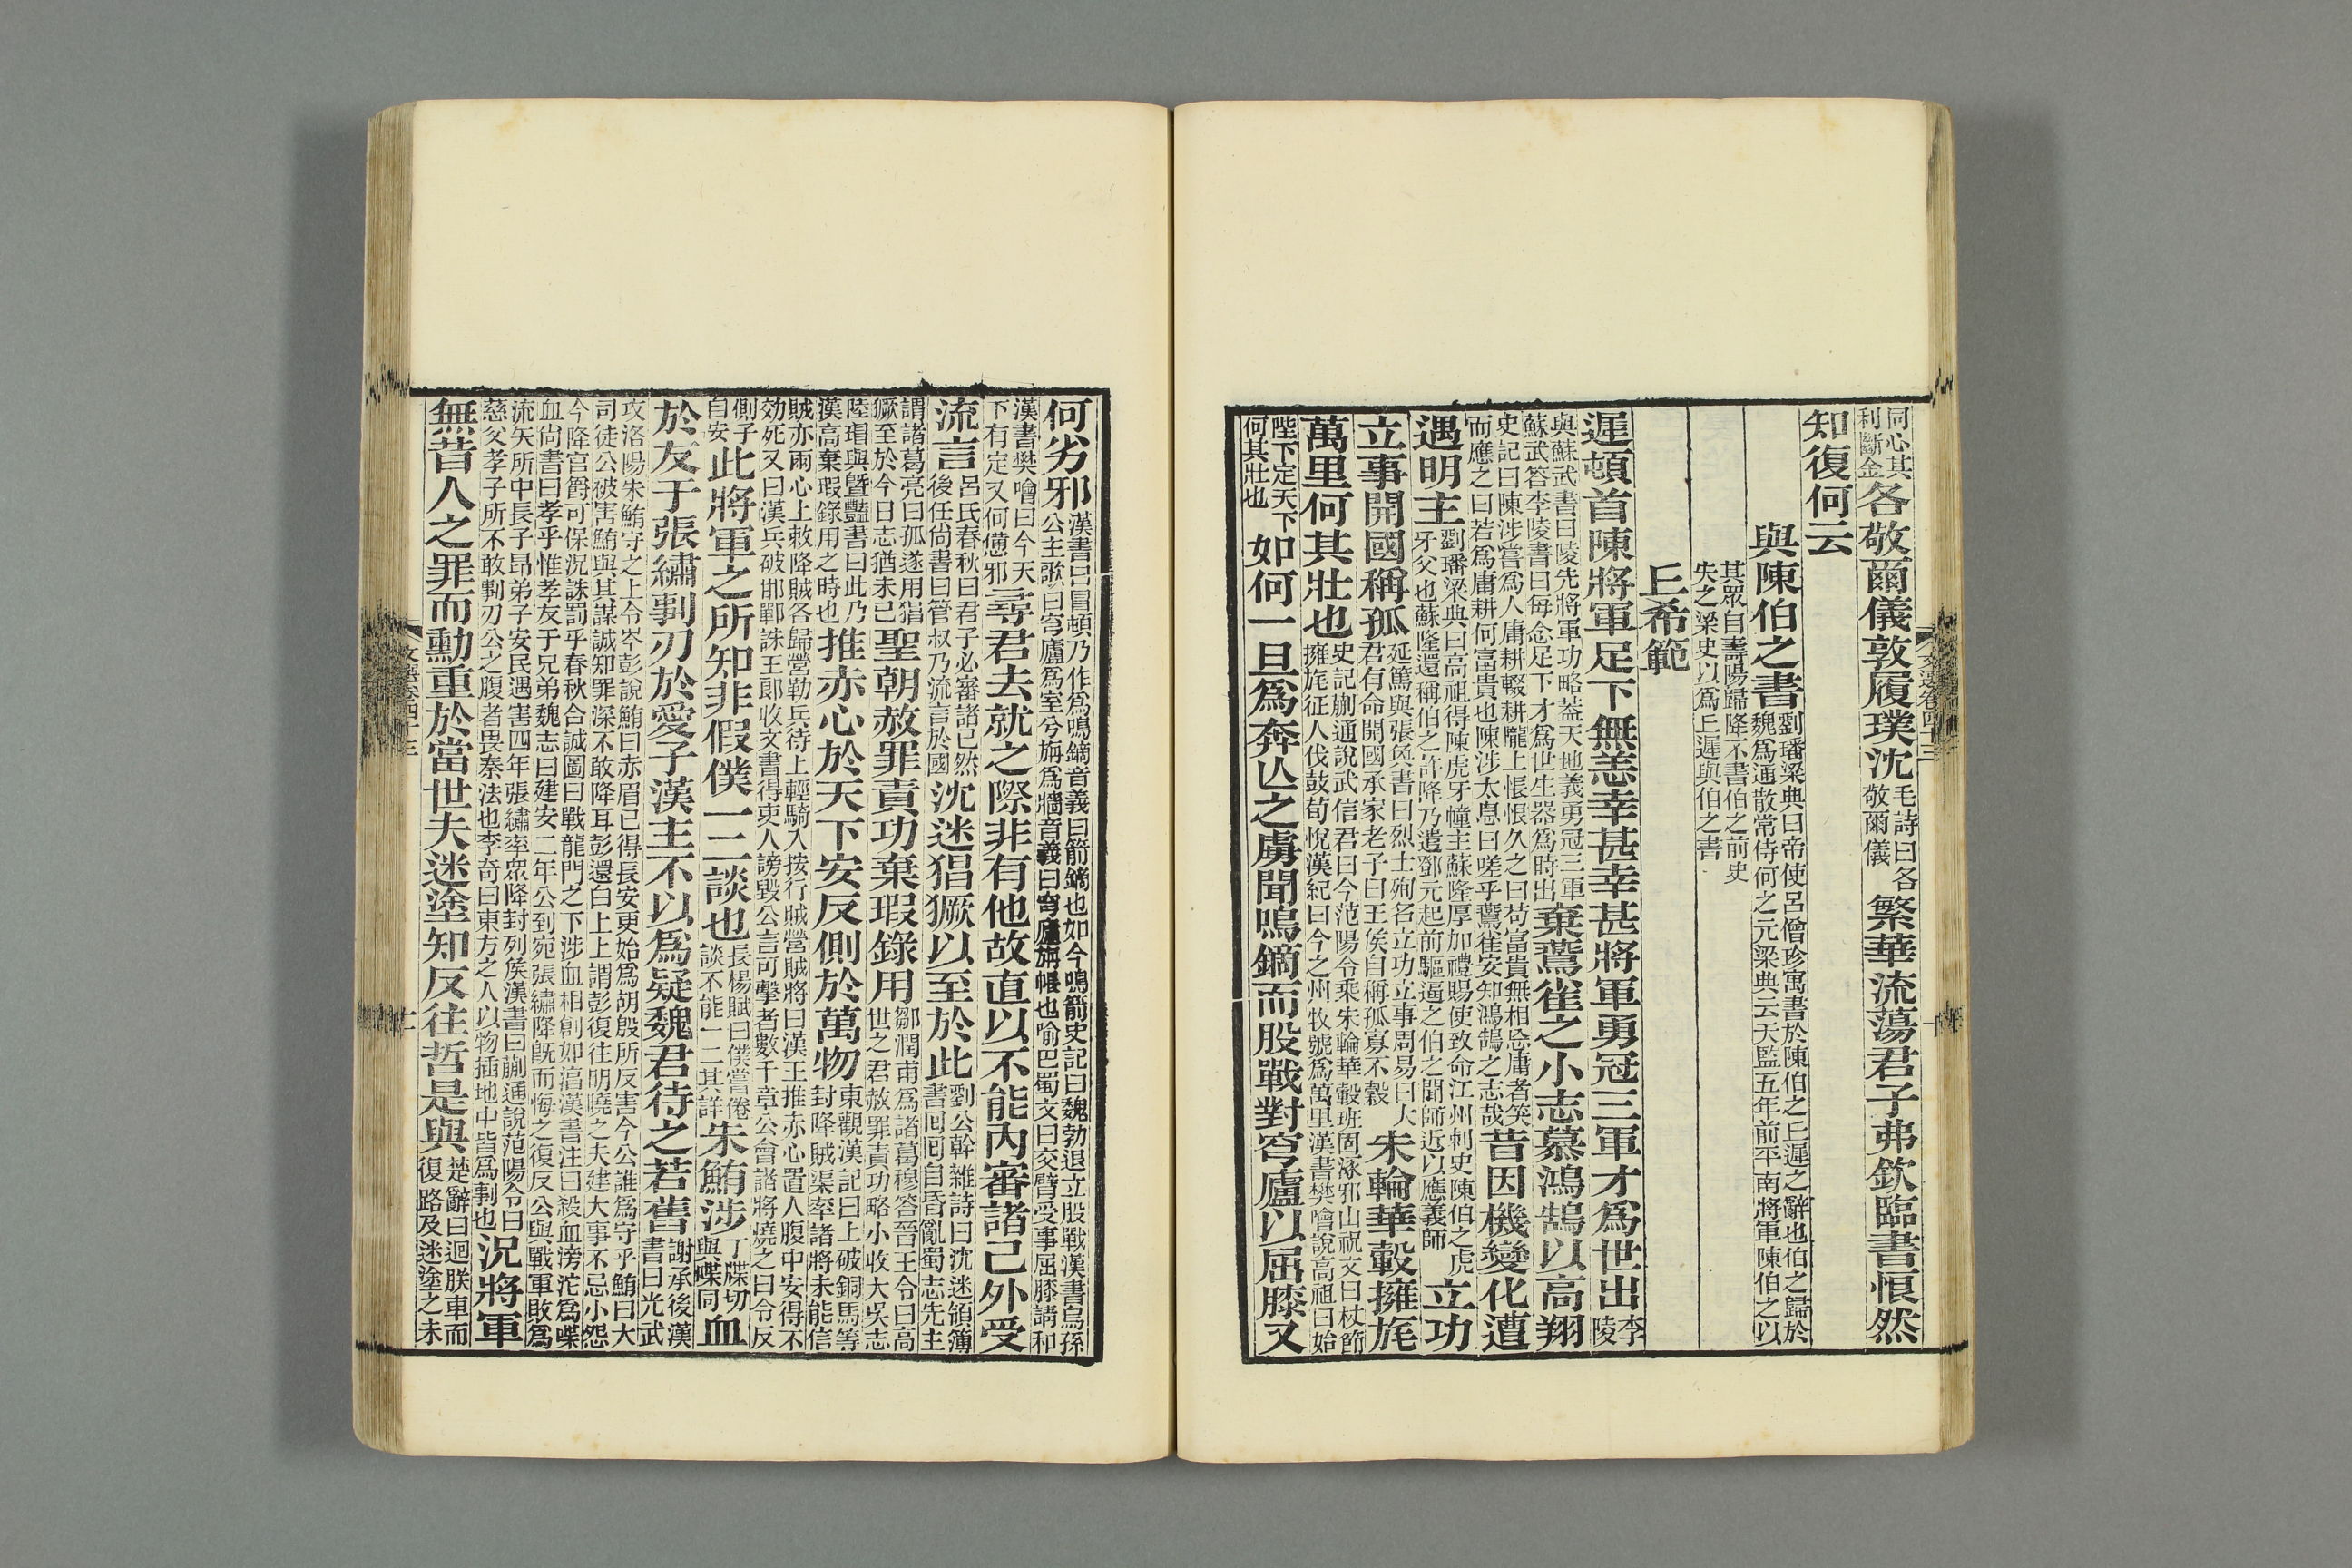 文選卷四十三
同心其
利斷金
各敬爾儀敦履璞沈
毛詩曰各
敬爾儀
繁華流蕩君子弗欽臨書恨然
知復何云
與陳伯之書
劉璠梁典曰帝使呂僧珍寓書於陳伯之丘遲之辭也伯之歸於
魏為通散常侍何之元梁典云天監五年前平南將軍陳伯之以
其眾自壽陽歸降不書伯之前史
失之梁史以為丘遲與伯之書
丘希範
遲頓首陳將軍足下無恙幸甚幸甚將軍勇冠三軍才為世出
李
陵
與蘇武書曰陵先將軍功略蓋天地義勇冠三軍
蘇武答李陵書曰每念足下才為世生器為時出
棄鷰雀之小志慕鴻鵠以高翔
史記曰陳涉嘗為人庸耕輟耕隴上悵恨久之曰苟富貴無相忘庸者笑
而應之曰若為庸耕何富貴也陳涉太息曰嗟乎鷰雀安知鴻鵠之志哉
昔因機變化遭
遇明主
劉璠梁典曰高祖得陳虎牙幢主蘇隆厚加禮賜使致命江州刺史陳伯之虎
牙父也蘇隆還稱伯之許降乃遣鄧元起前驅逼之伯之聞師近以應義師
立功
立事開國稱孤
延篤與張奐書曰烈士殉名立功立事周易曰大
君有命開國承家老子曰王侯自稱孤寡不穀
朱輪華轂擁旄
萬里何其壯也
史記蒯通說武信君曰今范陽令乘朱輪華轂班固涿邪山祝文曰杖節
擁旄征人伐鼓荀悅漢紀曰今之州牧號為萬里漢書樊噲說高祖曰始
陛下定天下
何其壯也
如何一旦為奔亾之虜聞鳴鏑而股戰對穹廬以屈膝又
何劣邪
漢書曰冒頓乃作為鳴鏑音義曰箭鏑也如今鳴箭史記曰魏勃退立股戰漢書烏孫
公主歌曰穹廬為室兮旃為牆音義曰穹廬旃帳也喻巴蜀文曰交臂受事屈膝請和
漢書樊噲曰今天
下有定又何憊邪
尋君去就之際非有他故直以不能內審諸己外受
流言
呂氏春秋曰君子必審諸己然
後任尚書曰管叔乃流言於國
沈迷猖獗以至於此
劉公幹雜詩曰沈迷領簿
書回回自昏亂蜀志先主
謂諸葛亮曰孤遂用猖
獗至於今日志猶未已
聖朝赦罪責功棄瑕錄用
鄒潤甫為諸葛穆答晉王令曰高
世之君赦罪責功略小收大吳志
陸瑁與曁豔書曰此乃
漢高棄瑕錄用之時也
推赤心於天下安反側於萬物
東觀漢記曰上破銅馬等
封降賊渠率諸將未能信
賊亦兩心上敕降賊各歸營勒兵待上輕騎入按行賊營賊將曰漢王推赤心置人腹中安得不
効死又曰漢兵破邯鄲誅王郎收文書得吏人謗毀公言可擊者數千章公會諸將燒之曰令反
側子
自安
此將軍之所知非假僕一二談也
長楊賦曰僕嘗倦
談不能一二其詳
朱鮪涉
丁牒切
與喋同
血
於友于張繡剚刃於愛子漢主不以為疑魏君待之若舊
謝承後漢
書曰光武
攻洛陽朱鮪守之上令岑彭說鮪曰赤眉已得長安更始為胡殷所反害今公誰為守乎鮪曰大
司徒公被害鮪與其謀誠知罪深不敢降耳彭還白上上謂彭復往明曉之夫建大事不忌小怨
今降官爵可保況誅罰乎春秋合誠圖曰戰龍門之下涉血相創如淳漢書注曰殺血滂沱為喋
血尚書曰孝乎惟孝友于兄弟魏志曰建安二年公到宛張繡降旣而悔之復反公與戰軍敗為
流矢所中長子昂弟子安民遇害四年張繡率眾降封列侯漢書曰蒯通說范陽令曰
慈父孝子所不敢剚刃公之腹者畏秦法也李奇曰東方之人以物插地中皆為剚也
況將軍
無昔人之罪而勳重於當世夫迷塗知反往哲是與
楚辭曰迴朕車而
復路及迷塗之未
文選卷四十三